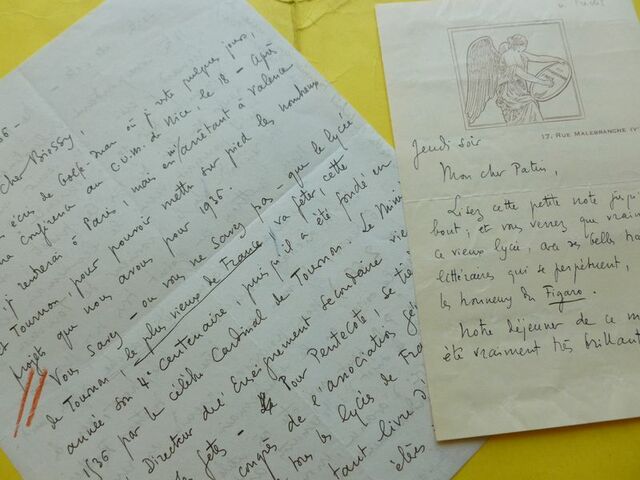 cher Boissy,
écris de Golfe-Juan où je reste quelques jours,
ma conférence au C.U.M. de Nice, le 18 - Après
je rentrerai à Paris, mais en m'arrêtant à Valence
et Tournon, pour pouvoir mettre sur pied les nombreux
projets que nous avons pour 1936.
Vous savez - ou vous ne savez pas - que le lycée
de Tournon, le plus vieux de France, va fêter, cette
année son 4e centenaire, puisqu'il a été fondé en
1536 par le célèbre Cardinal de Tournon. Le
Directeur de l'Enseignement secondaire
fêtes - Pour Pentecôte, se
congrès de l'association
tous les lycées de
tant livre d'
17, RUE MALEBRANCHE (V
Jeudi soir
Mon cher Patin,
Lisez cette petite note jusqu'
bout; et vous verrez que vraim
ce vieux lycée, avec ses belles tra
littéraires qui se perpétuent,
les honneurs du Figaro.
Notre déjeuner de ce m
été vraiment très brillant